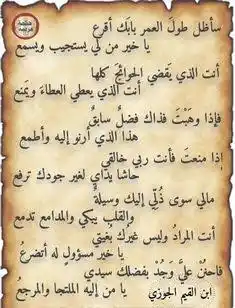 سأظل طولَ العمر بابَك أقرع
يا خير من لي يستجيب ويسمع
أنت الذي يَقضي الحوائجَ كلها
أنت الذي يعطي العطاءَ ويَمنع
فإذا وهَبْتَ فذاك فضلٌ سابقٌ
هذا الذي أرنو إليه وأطمع
إذا منعتَ فأنت ربي خالقي
حاشا يدايَ لغير جودك ترفع
مالي سوى ذُلّي إليك وسيلةٌ
والقلب يبكي والمدامع تدمع
أنت المرادُ وليس غيرك بُغيتي
يا خير مسؤولٍ له أتضرعُ
فاحنُنْ عليَّ وَجُدْ بفضلك سيدي
يا من إليه الملتجا والمرجعُ
ابن القيم الجوزي